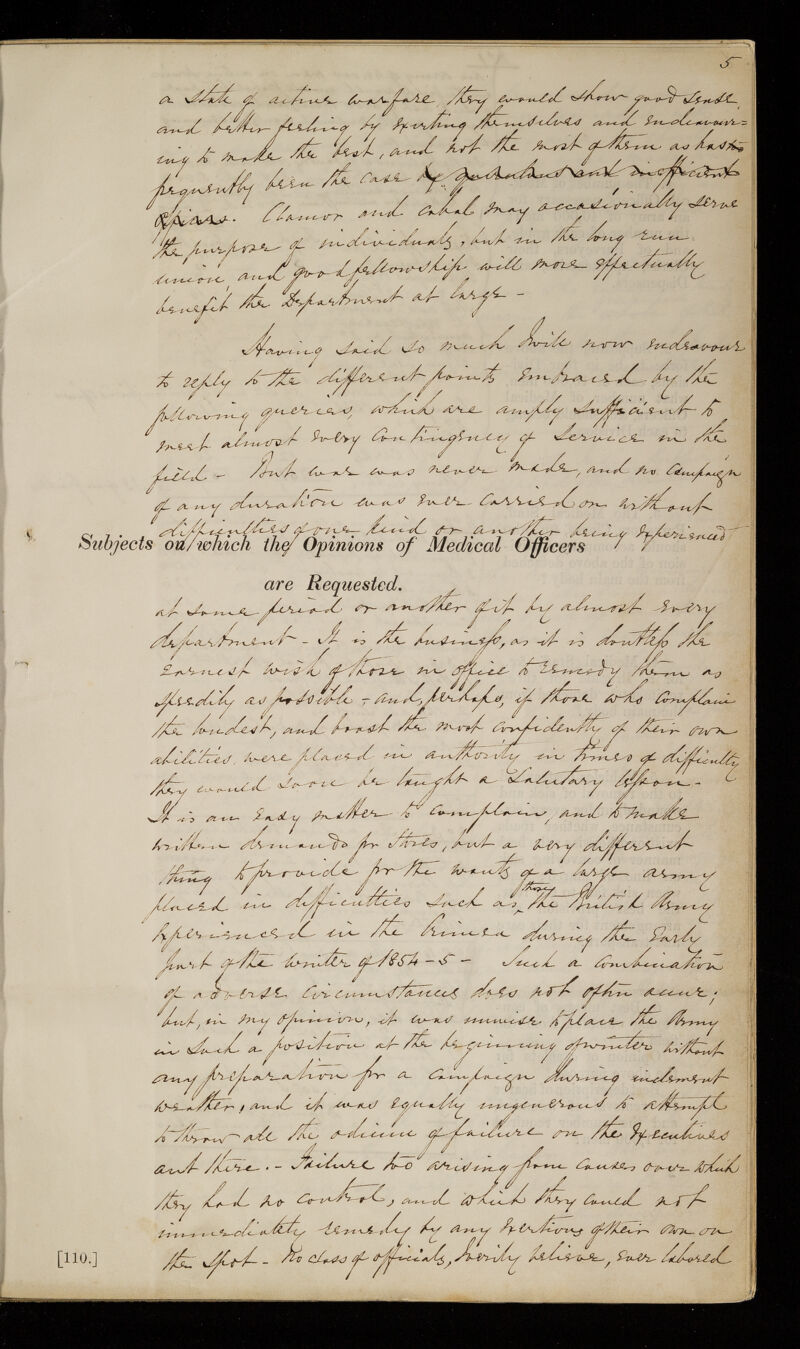 5
a state of active warfare, they would show good sense,
and better feeling by exerting themselves and endeavour=
ing to make the best, and not the most of them as has
frequently been the case by querulous and inefficient
officers. Clamor and cabal may occasionally serve
the purposes of individuals, but in the long run
union, and good fellowship will more effectually
benefit the Department at large -
Having said so much I will now endeavour
to reply to the different points embraced by the
following queries, which are amply sufficient to
meet almost every contingency of service in the
field - But war was never made, and no campaign
of any duration was ever carried on without
difficulties of one kind or another being experienced
Subjects on which the Opinions of Medical Officers
are Requested.
at some period or another of it by almost every
department - It is the business, as it is doubtless the
earnest wish of those in office to remedy them as
speedily as possible - and, perhaps, if those who complain
the loudest, and boast the most confidently of their own
abilities, were placed in authority in times of difficulty
they would soon be taught a salutary lesson -
It is an easy matter to complain, and to make
written demands for stores, but a very different
thing to provide for the wants of a large army
placed in difficulties such as those the British Army
experienced in the Crimea during the early
part of the winter of 1854-5 - Such a combination
of adverse circumstances does not often occur;
but, in my opinion, it was unwise to place the Army
in such a position at the beginning of winter without
any preparation for a campaign during inclement
weather, and it was equally ungenerous to attempt
to throw all the odium of failure on the Executives
out there. - Failure too arising from causes over which
they had no control, and which they could not
immediately remedy by any exertions of their own on
the spot - No class of officials, I verily believe, ever labored
[110.]